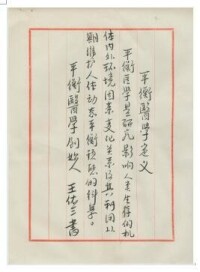 平衡醫学定义
平衡医学是研究影响人类生存的机
体内外环境因素变化关系及其利用以
期维护人体动态平衡状态的科学。
平衡醫学創始人 王佑三書